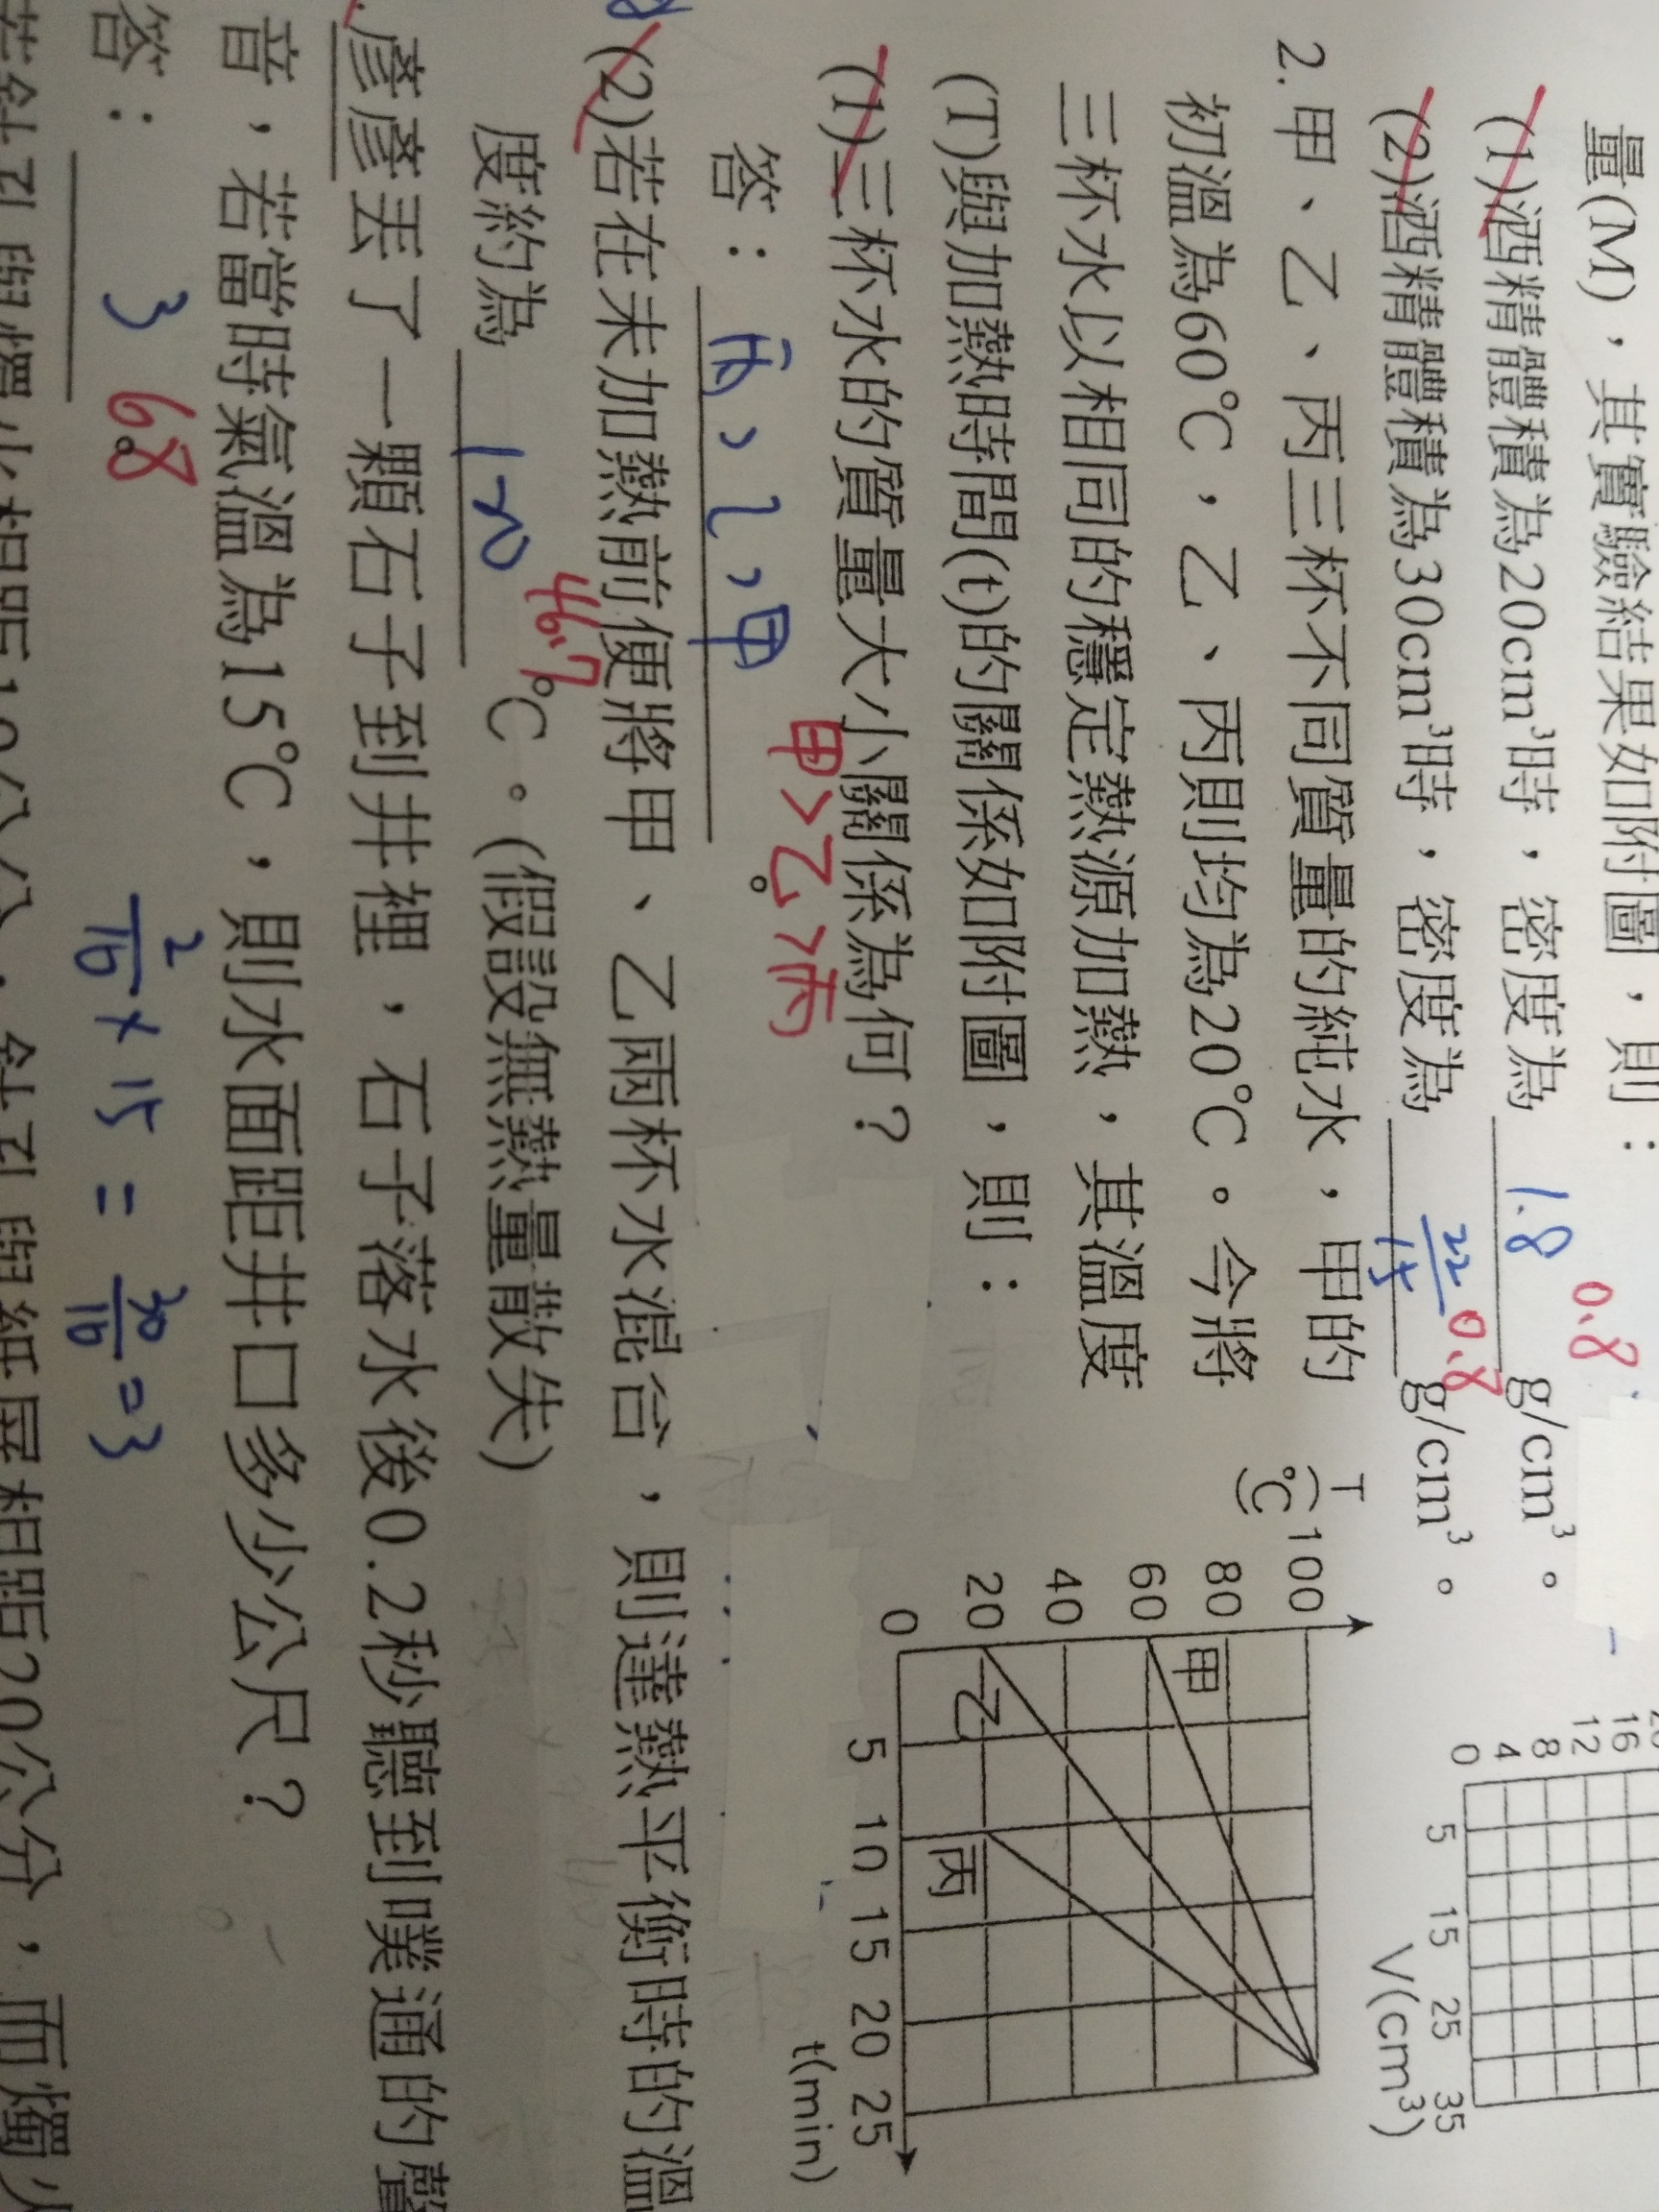 量(M)，其實驗結果如附圖，則：
(1)酒精體積為20cm³時，密度為 1.8 0.8 g/cm³。
(2)酒精體積為30cm³時，密度為 22/15 0.8 g/cm³。
20
16
12
8
4
0
5 15 25 35
V(cm³)
2.甲、乙、丙三杯不同質量的純水，甲的
初溫為60℃，乙、丙則均為20℃。今將
三杯水以相同的穩定熱源加熱，其溫度
(T)與加熱時間(t)的關係如附圖，則：
T(℃)
100
80
60
40
20
0
甲
乙
丙
5 10 15 20 25
t(min)
(1)三杯水的質量大小關係為何？
甲>乙>丙
答：丙>乙>甲。
(2)若在未加熱前便將甲、乙兩杯水混合，則達熱平衡時的溫
46.7
度約為 120 ℃。(假設無熱量散失)
彥彥丟了一顆石子到井裡，石子落水後0.2秒聽到噗通的聲
音，若當時氣溫為15℃，則水面距井口多少公尺？
答：3 68
2/10 × 15 = 30/10 = 3